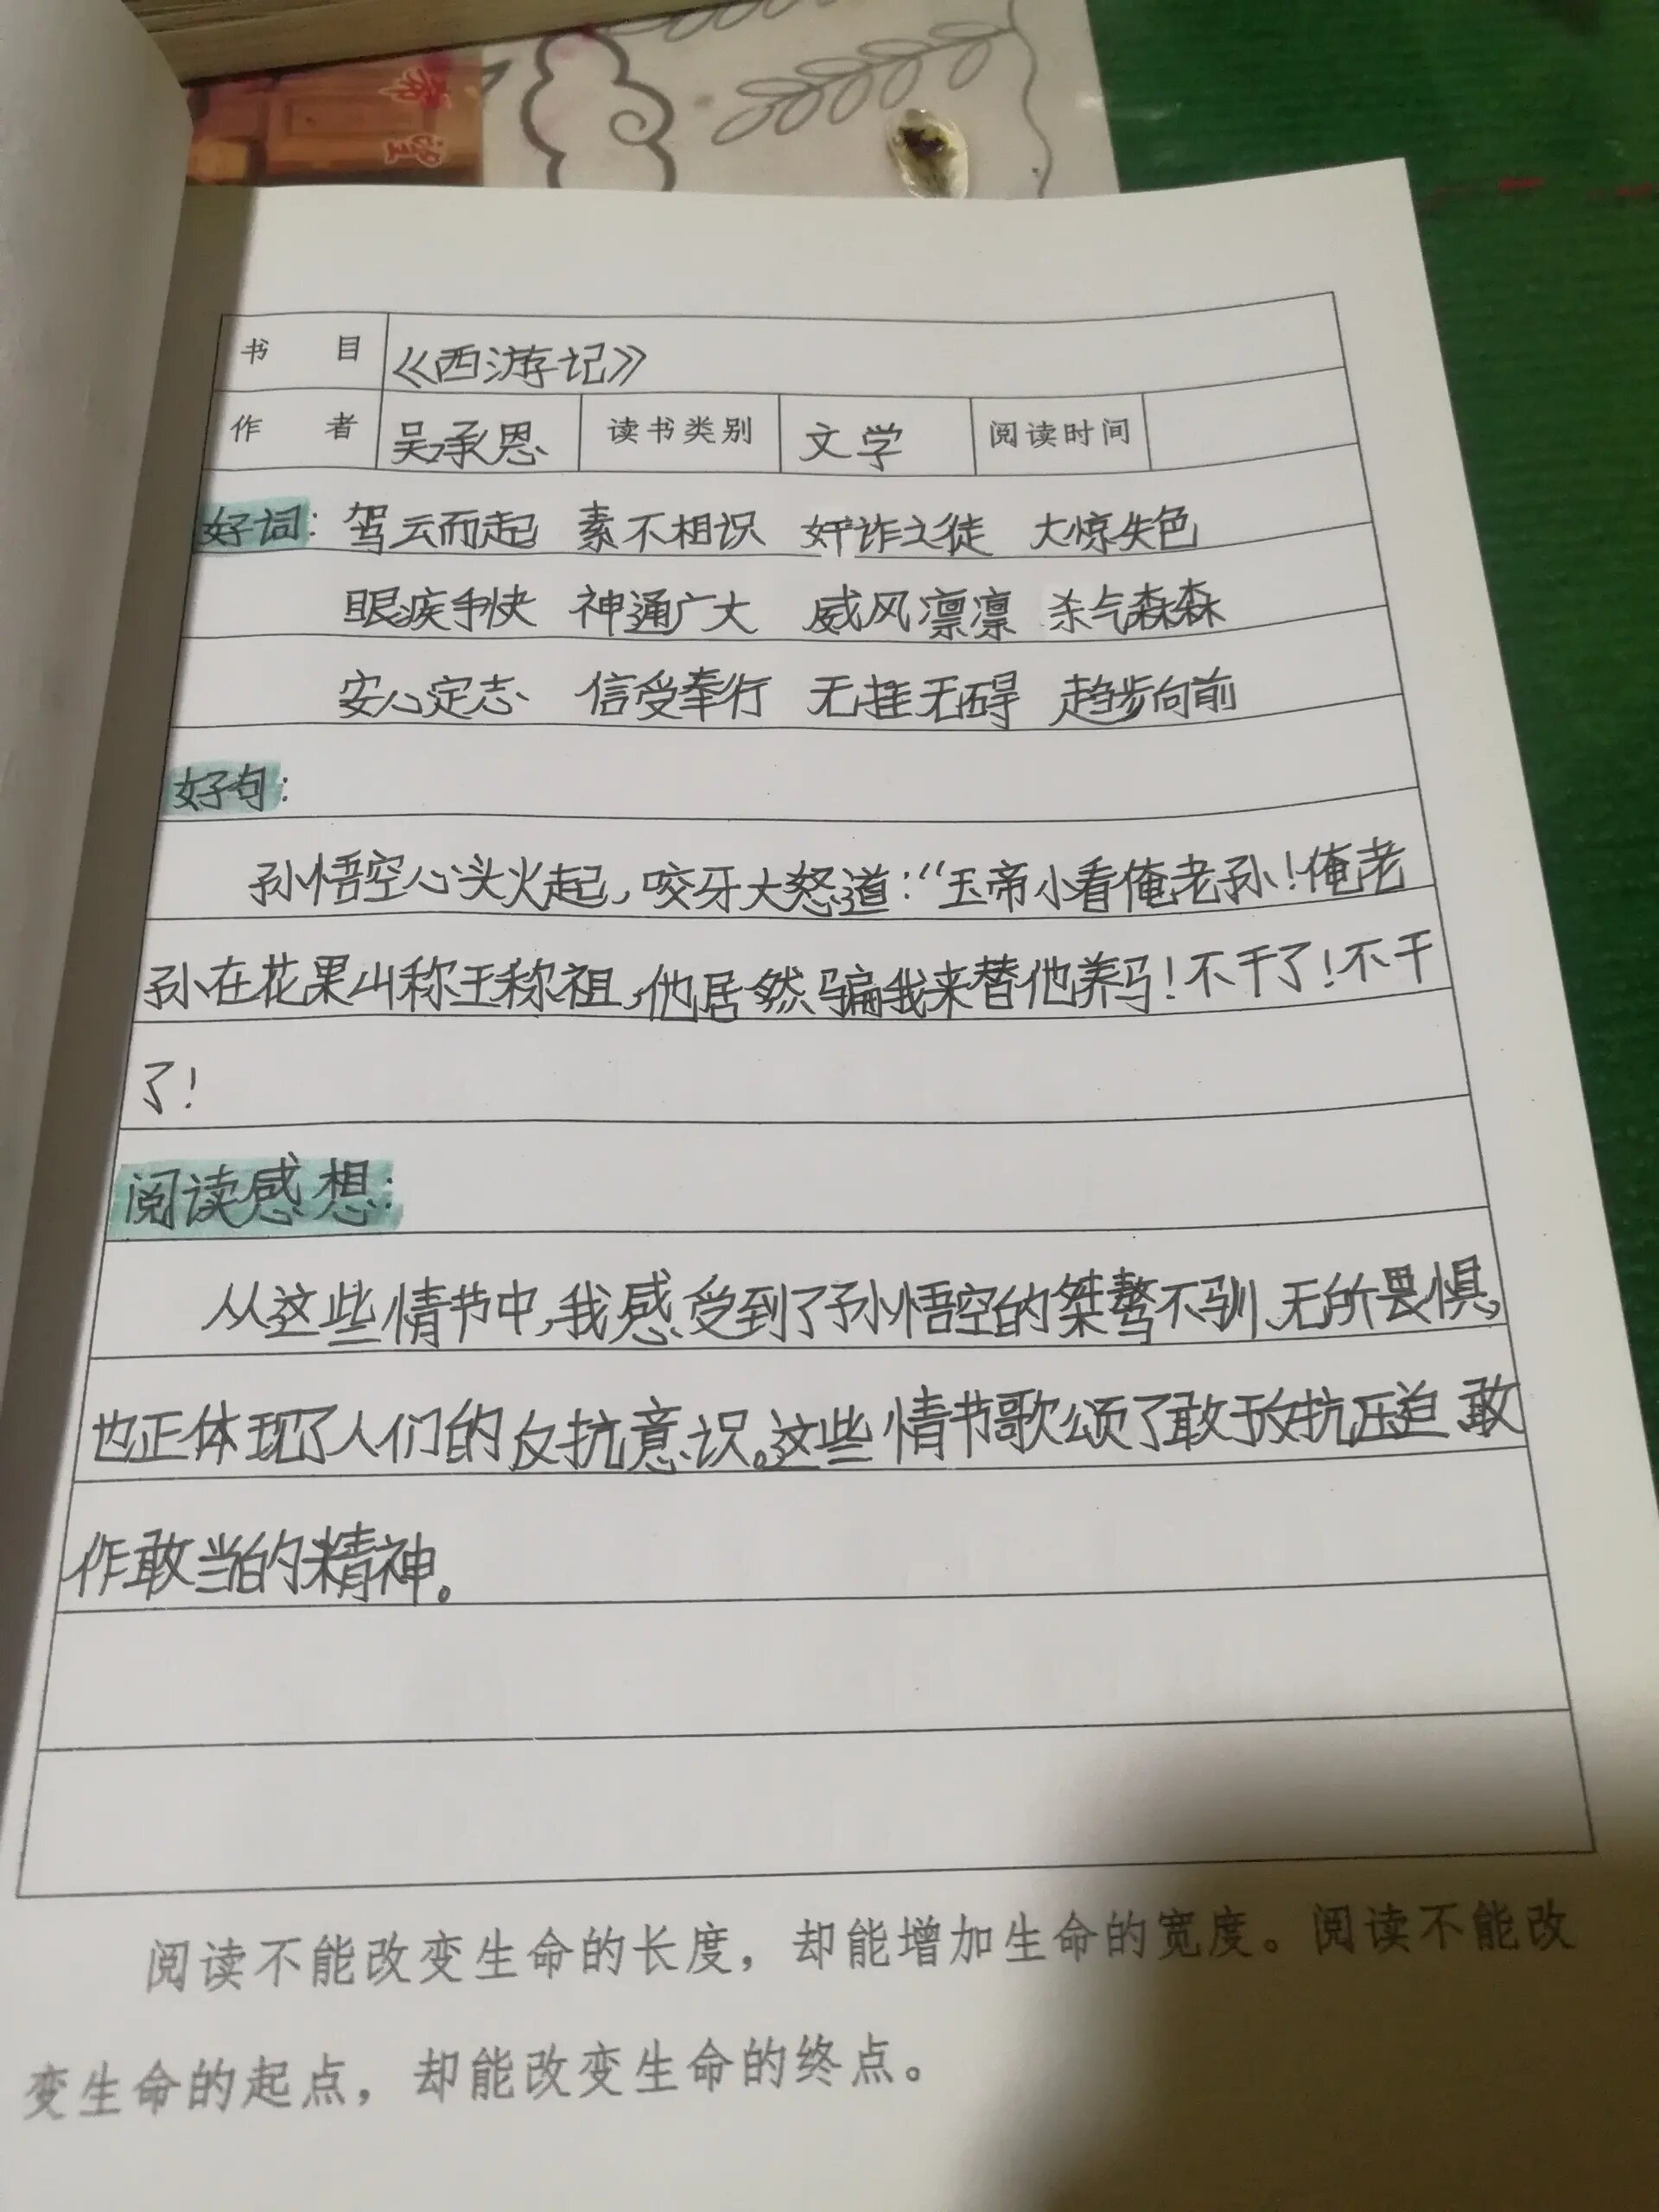 希望
书目 《西游记》
作者 吴承恩 读书类别 文学 阅读时间
好词: 驾云而起 素不相识 奸诈之徒 大惊失色
眼疾手快 神通广大 威风凛凛 杀气森森
安心定志 信受奉行 无挂无碍 趋步向前
好句:
孙悟空心头火起,咬牙大怒道:“玉帝小看俺老孙!俺老
孙在花果山称王称祖,他居然骗我来替他养马!不干了!不干
了!
阅读感想:
从这些情节中,我感受到了孙悟空的桀骜不驯、无所畏惧,
也正体现了人们的反抗意识。这些情节歌颂了敢于反抗压迫、敢
作敢当的精神。
阅读不能改变生命的长度，却能增加生命的宽度。阅读不能改
变生命的起点，却能改变生命的终点。